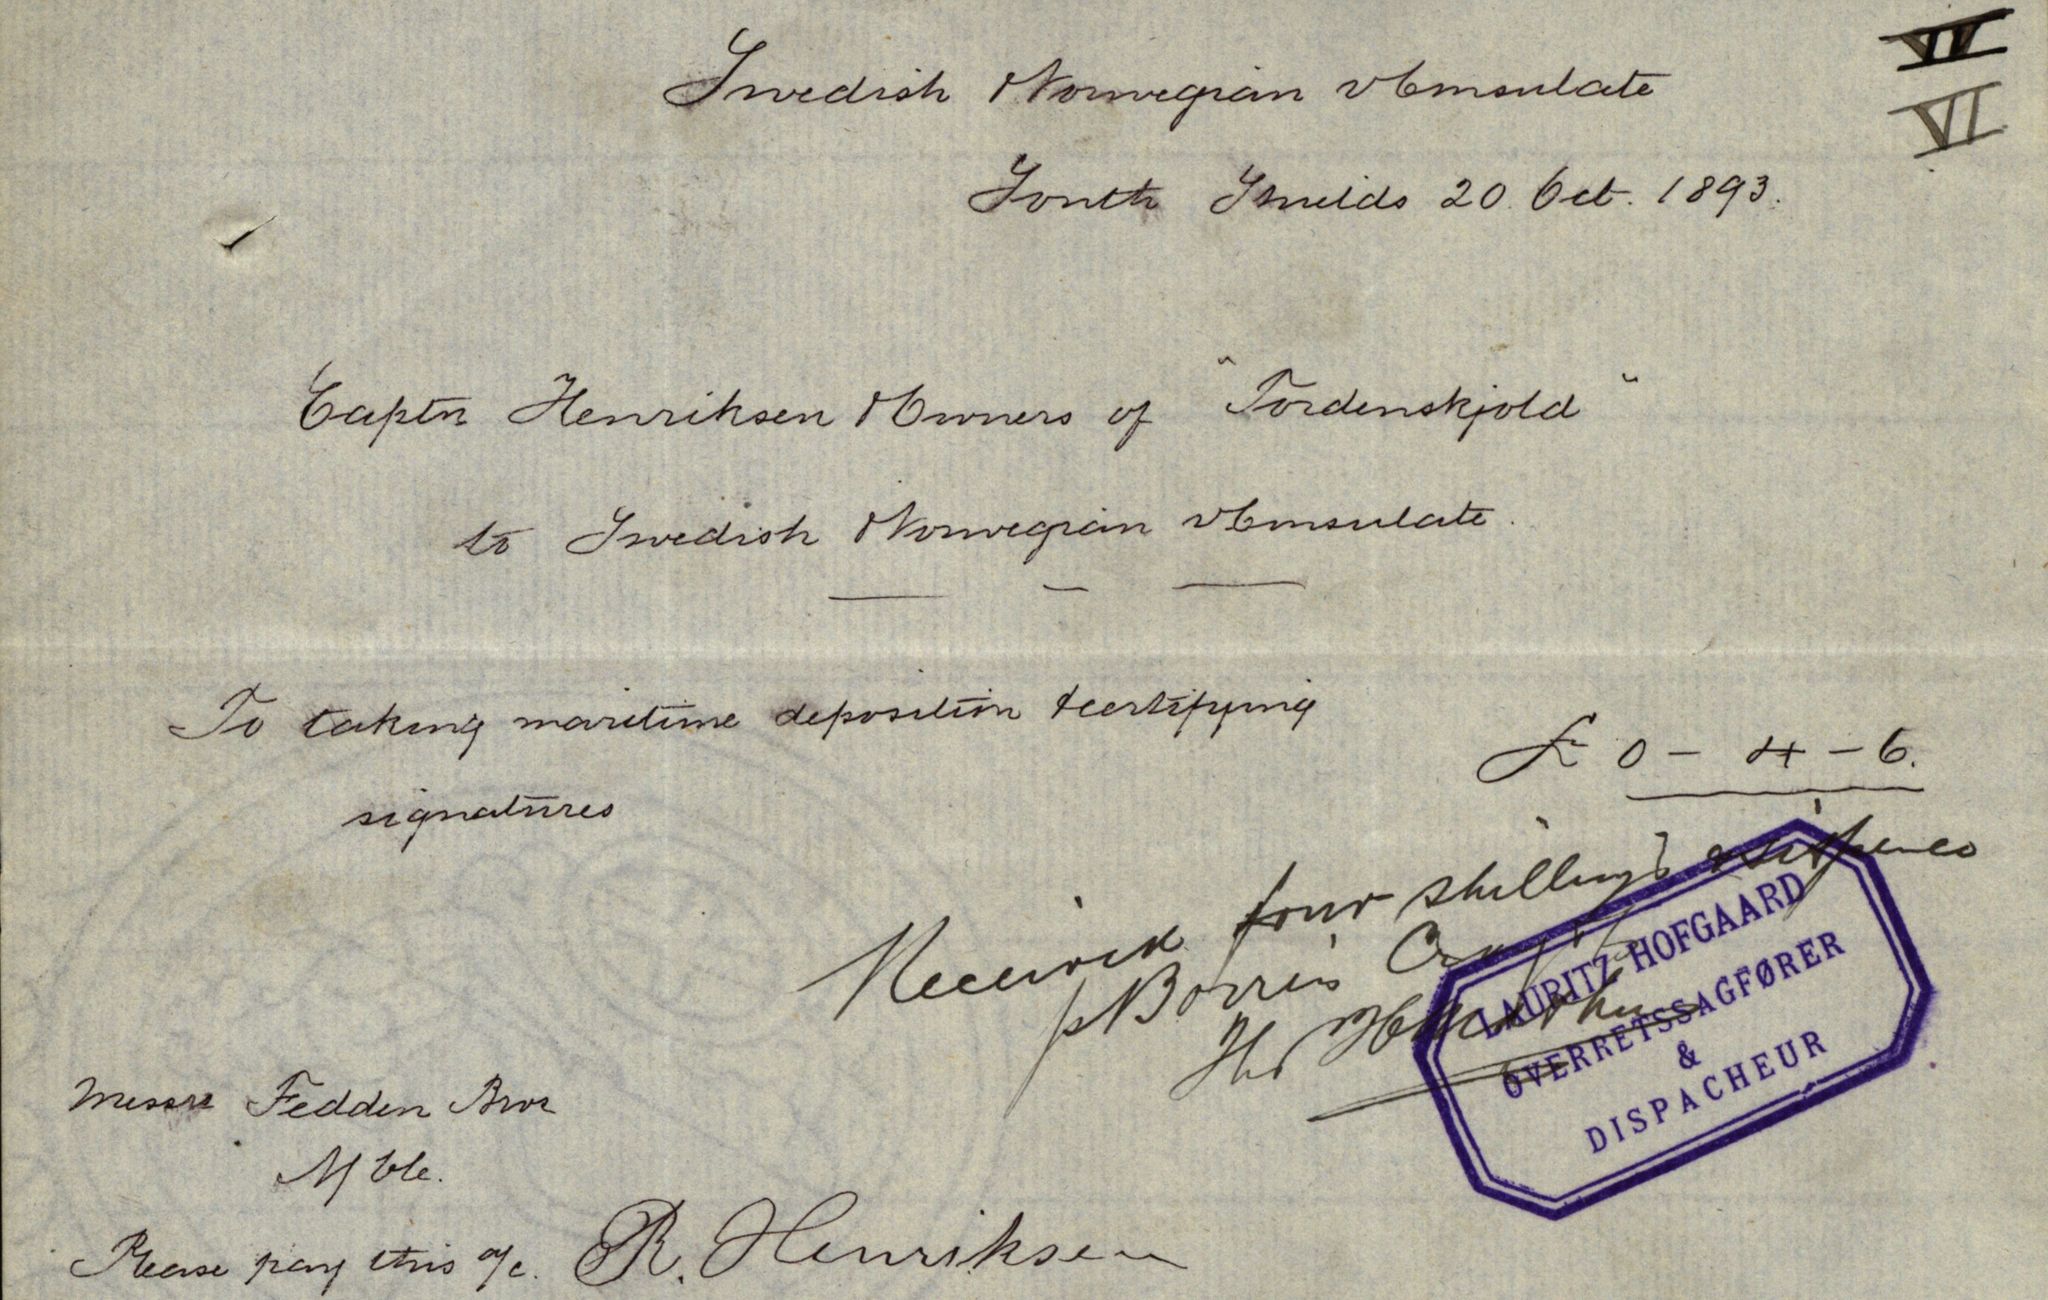 VI
Swedish Norwegian v Consulate
South Shields 20 Oct. 1893.
Captn Henriksen & Owners of "Tordenskjold"
to Swedish Norwegian v Consulate.
To taking maritime deposition & certifying
signatures
£ 0 - 4 - 6.
Received four shillings & sixpence
p Borries Craig
LAURITZ HOFGAARD
OVERRETSSAGFØRER
&
DISPACHEUR
Messrs Fedden Bros
N/Cle.
Please pay this a/c. R. Henriksen